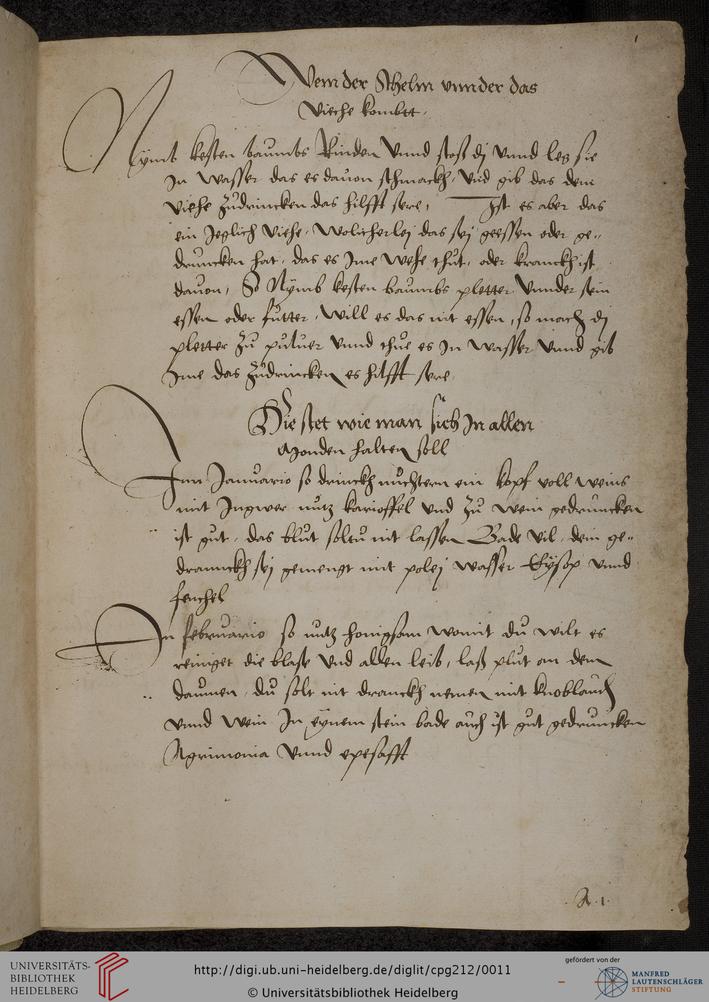 1
Wem der Schelm vnnder das
Vieche kombtt.
Nymb kesten baumbs Rinden Vnnd stoß dj Vnnd leg sie
In wasser das es dauon schmackh, Vnd gib das dem
Viehe zudrincken das hilfft sere, Ist es aber das
ein Jeglich Viehe, wolicherlej das sej geessen oder ge-
druncken hat, das es Ime wehe thut, oder kranckh ist
dauon, So Nymb kesten baumbs pletter Vnnder sein
essen oder futter, will es das nit essen, so mach dj
pletter zu puluer vnnd thue es In wasser Vnnd gib
Ime das zudrincken es hilfft sere
Die stet wie man sich In allen
Monden halten soll
Inn Januario so drinckh nuchtern ein kopf voll weins
mit Ingwer nutz karioffel Vnd zu wein gedruncken
ist gut, das blut soltu nit lassen Bade vil, dein ge-
dranckh sej gemengt mit polej wasser Eysop vnnd
fenchel
In februario so nutz honigsam womit du wilt es
reiniget die blase Vnd allen leib, laß plut an dem
daumen, du solt nit dranckh nemen mit knoblauch
vnnd wein In eynem stein bade auch ist gut gedruncken
Agrimonia Vnnd epesafft
A 1
UNIVERSITÄTS-
BIBLIOTHEK
HEIDELBERG
http://digi.ub.uni-heidelberg.de/diglit/cpg212/0011
© Universitätsbibliothek Heidelberg
gefördert von der
MANFRED
LAUTENSCHLÄGER
STIFTUNG